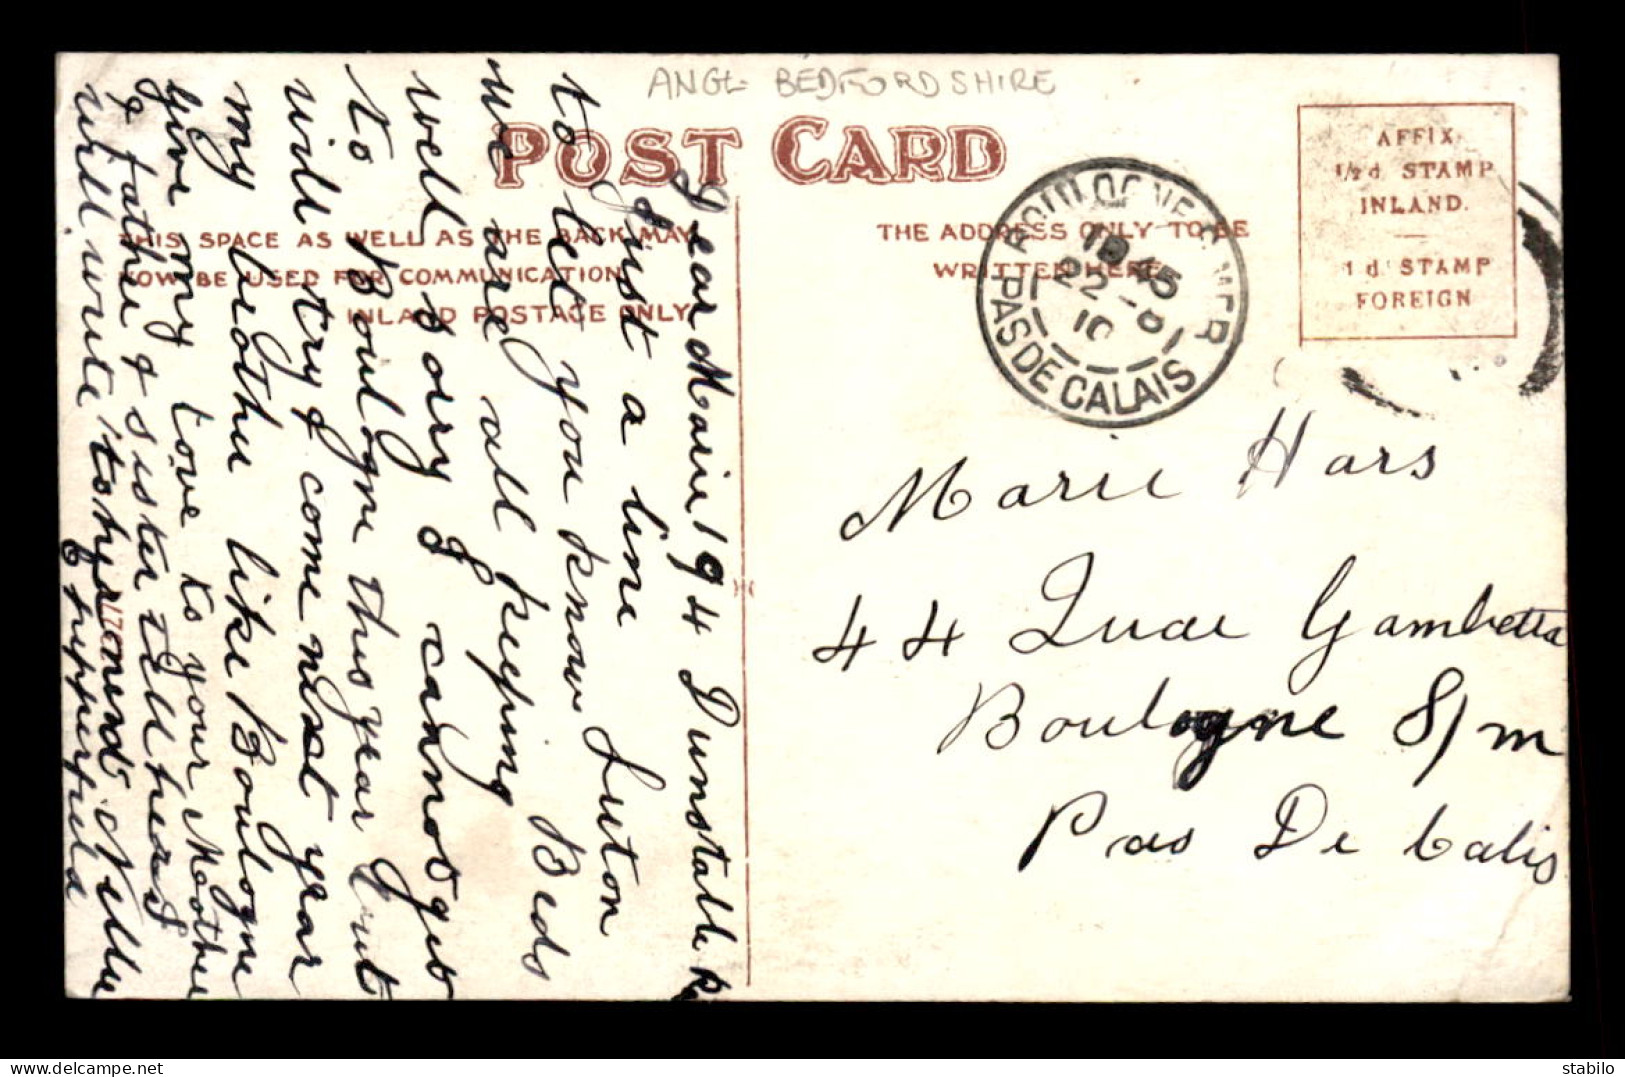 ANGL- BEDFORDSHIRE
POST CARD
THIS SPACE AS WELL AS THE BACK MAY
NOW BE USED FOR COMMUNICATION
INLAND POSTAGE ONLY
THE ADDRESS ONLY TO BE
WRITTEN HERE
AFFIX
1/2d. STAMP
INLAND.
1d. STAMP
FOREIGN
BOULOGNE S MER
PAS DE CALAIS
22-8
10
Marie Hars
44 Quai Gambetta
Boulogne S/m
Pas De Calis
194 Dunstable R
Luton
Beds
Dear Marie
Just a line
to let you know
we are all keeping
well sorry I cannot get
to Boulogne this year but
will try & come next year
my brother like Boulogne
give my love to your Mother
& father & sister tell her I
will write to her Nellie
delcampe.net
stabilo